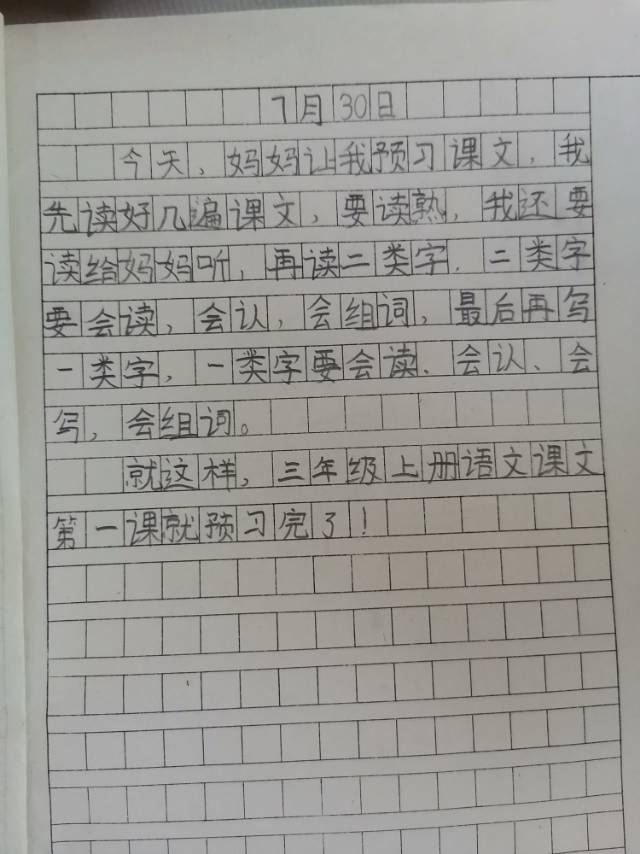 7月30日
今天，妈妈让我预习课文，我
先读好几遍课文，要读熟，我还要
读给妈妈听，再读二类字，二类字
要会读，会认，会组词，最后再写
一类字，一类字要会读、会认、会
写，会组词。
就这样，三年级上册语文课文
第一课就预习完了！